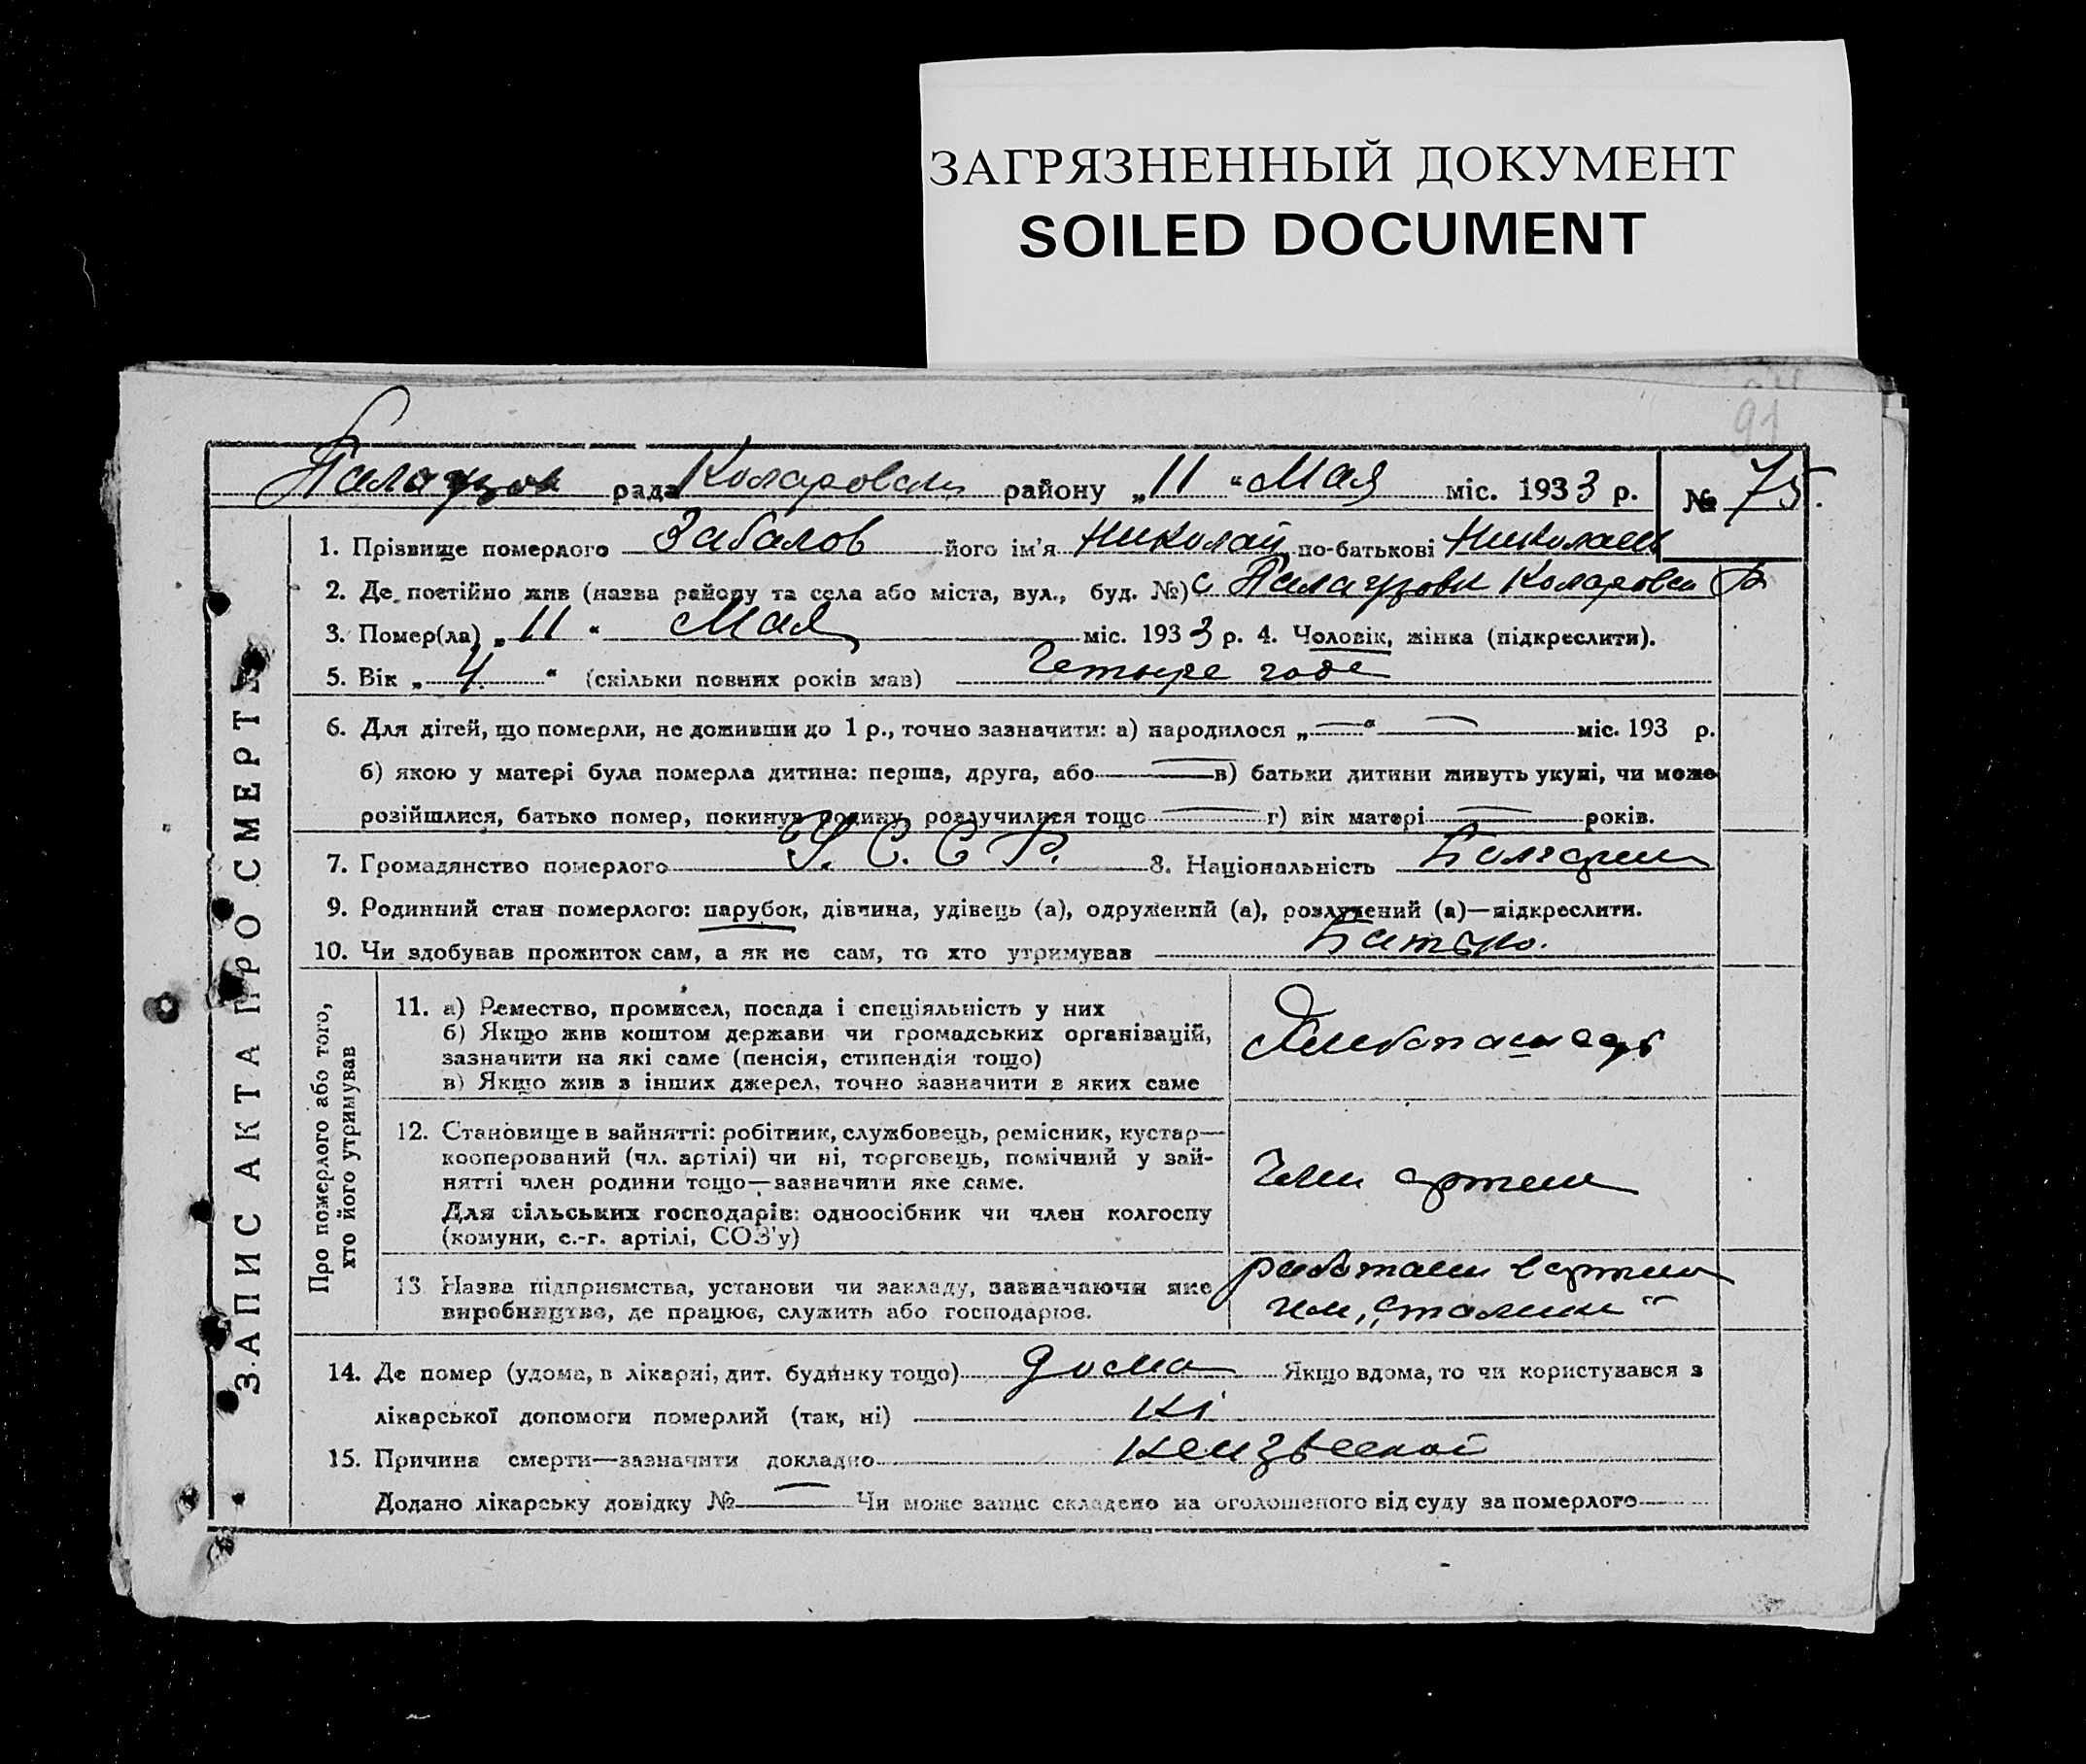 ЗАГРЯЗНЕННЫЙ ДОКУМЕНТ
SOILED DOCUMENT
91
рада Коларовск району „11“ Мая міс. 1933 р. № 75.
ЗАПИС АКТА ПРО СМЕРТЬ
1. Прізвище померлого Забалов його ім'я Николай по-батькові
2. Де постійно жив (назва району та села або міста, вул., буд. №) с Коларовск Р
3. Помер(ла) „11“ Мая міс. 1933 р. 4. Чоловік, жінка (підкреслити).
5. Вік „4“ (скільки повних років мав) Четыре года
6. Для дітей, що померли, не доживши до 1 р., точно зазначити: а) народилося „—“ — міс. 193 р.
б) якою у матері була померла дитина: перша, друга, або — в) батьки дитини живуть укупі, чи може
розійшлися, батько помер, покинув родину, розлучилися тощо — г) вік матері — років.
7. Громадянство померлого У. С. С. Р. 8. Національність Болгарин
9. Родинний стан померлого: парубок, дівчина, удівець (а), одружений (а), розлучений (а)—підкреслити.
10. Чи здобував прожиток сам, а як не сам, то хто утримував Батько.
Про померлого або того,
хто його утримував
11. а) Ремество, промисел, посада і спеціяльність у них
б) Якщо жив коштом держави чи громадських організацій,
зазначити на які саме (пенсія, стипендія тощо)
в) Якщо жив з інших джерел, точно зазначити з яких саме
Хлебопашець
12. Становище в зайнятті: робітник, службовець, ремісник, кустар—
кооперований (чл. артілі) чи ні, торговець, помічний у зай-
нятті член родини тощо—зазначити яке саме.
Для сільських господарів: одноосібник чи член колгоспу
(комуни, с.-г. артілі, СОЗ'у)
Член артели
13 Назва підприємства, установи чи закладу, зазначаючи яке
виробництво, де працює, служить або господарює.
в артели
им „Сталина“
14. Де помер (удома, в лікарні, дит. будинку тощо) дома Якщо вдома, то чи користувався з
лікарської допомоги померлий (так, ні) ні
15. Причина смерти—зазначити докладно
Додано лікарську довідку № — Чи може запис складено на оголошеного від суду за померлого